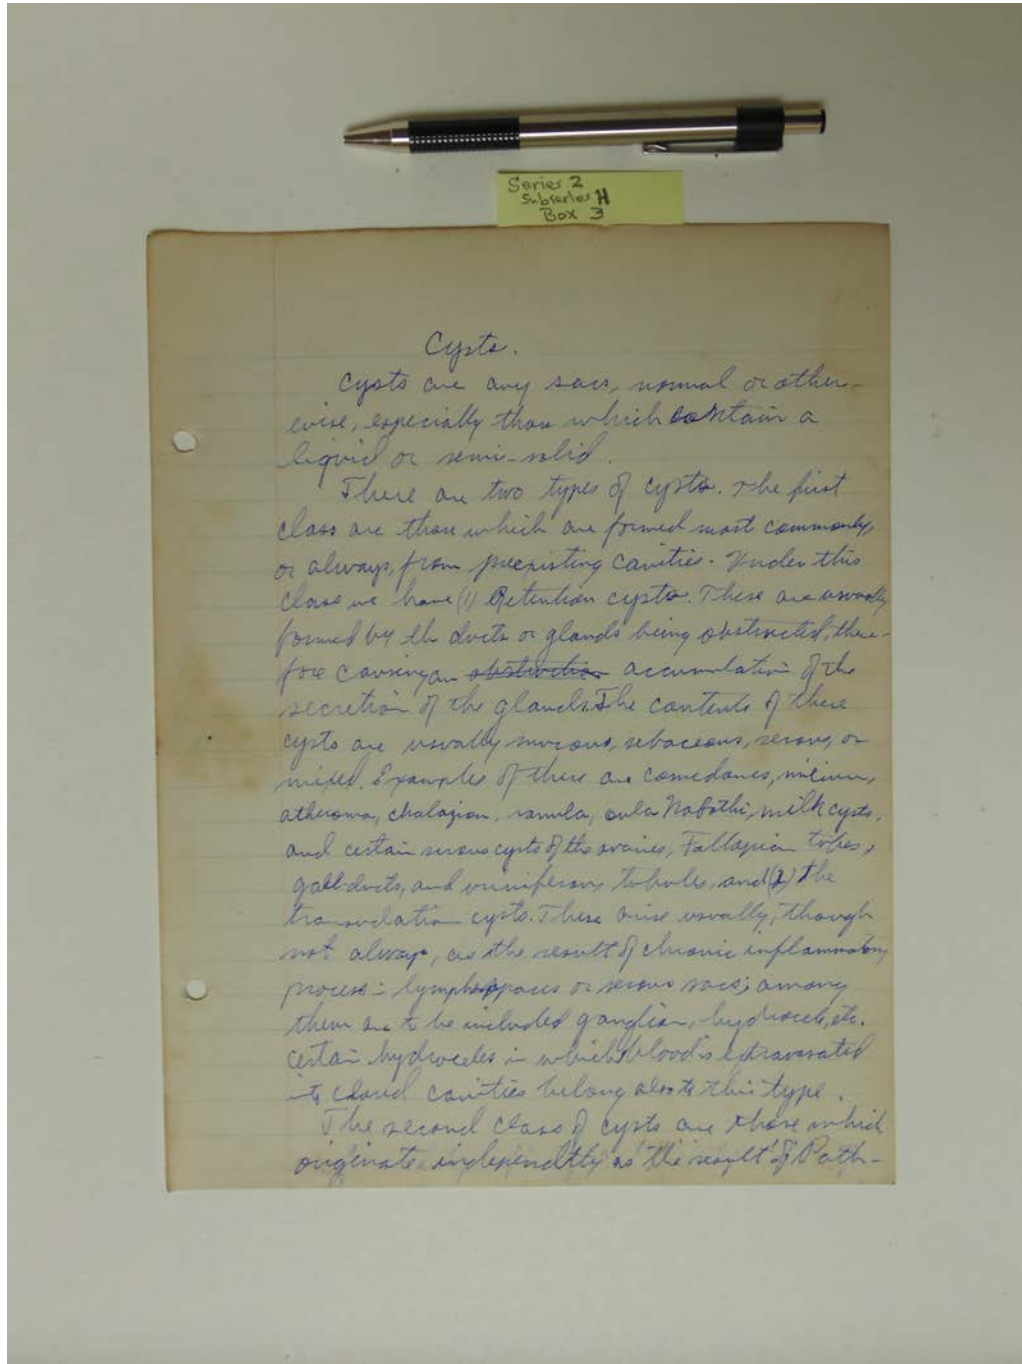 Series 2
Subseries H
Box 3
Cysts.
Cysts are any sacs, normal or other-
wise, especially those which contain a
liquid or semi-solid.
There are two types of cysts. The first
class are those which are formed most commonly,
or always, from preexisting cavities. Under this
class we have (1) Retention cysts. These are usually
formed by the ducts or glands being obstructed, there-
fore causing an obstruction accumulation of the
secretion of the glands. The contents of these
cysts are usually mucous, sebaceous, serous, or
mixed. Examples of these are comedones, milium,
atheroma, chalazion, ranula, ovula Nabothi, milk cysts,
and certain serous cysts of the ovaries, Fallopian tubes,
gall-ducts, and uriniferous tubules, and (2) the
transudation cysts. These arise usually, though
not always, as the result of chronic inflammatory
process in lymph spaces or serous sacs; among
them are to be included ganglion, hydrocele, etc.
Certain hydroceles in which blood is extravasated
into closed cavities belong also to this type.
The second class of cysts are those which
originate independtly as the result of Path-